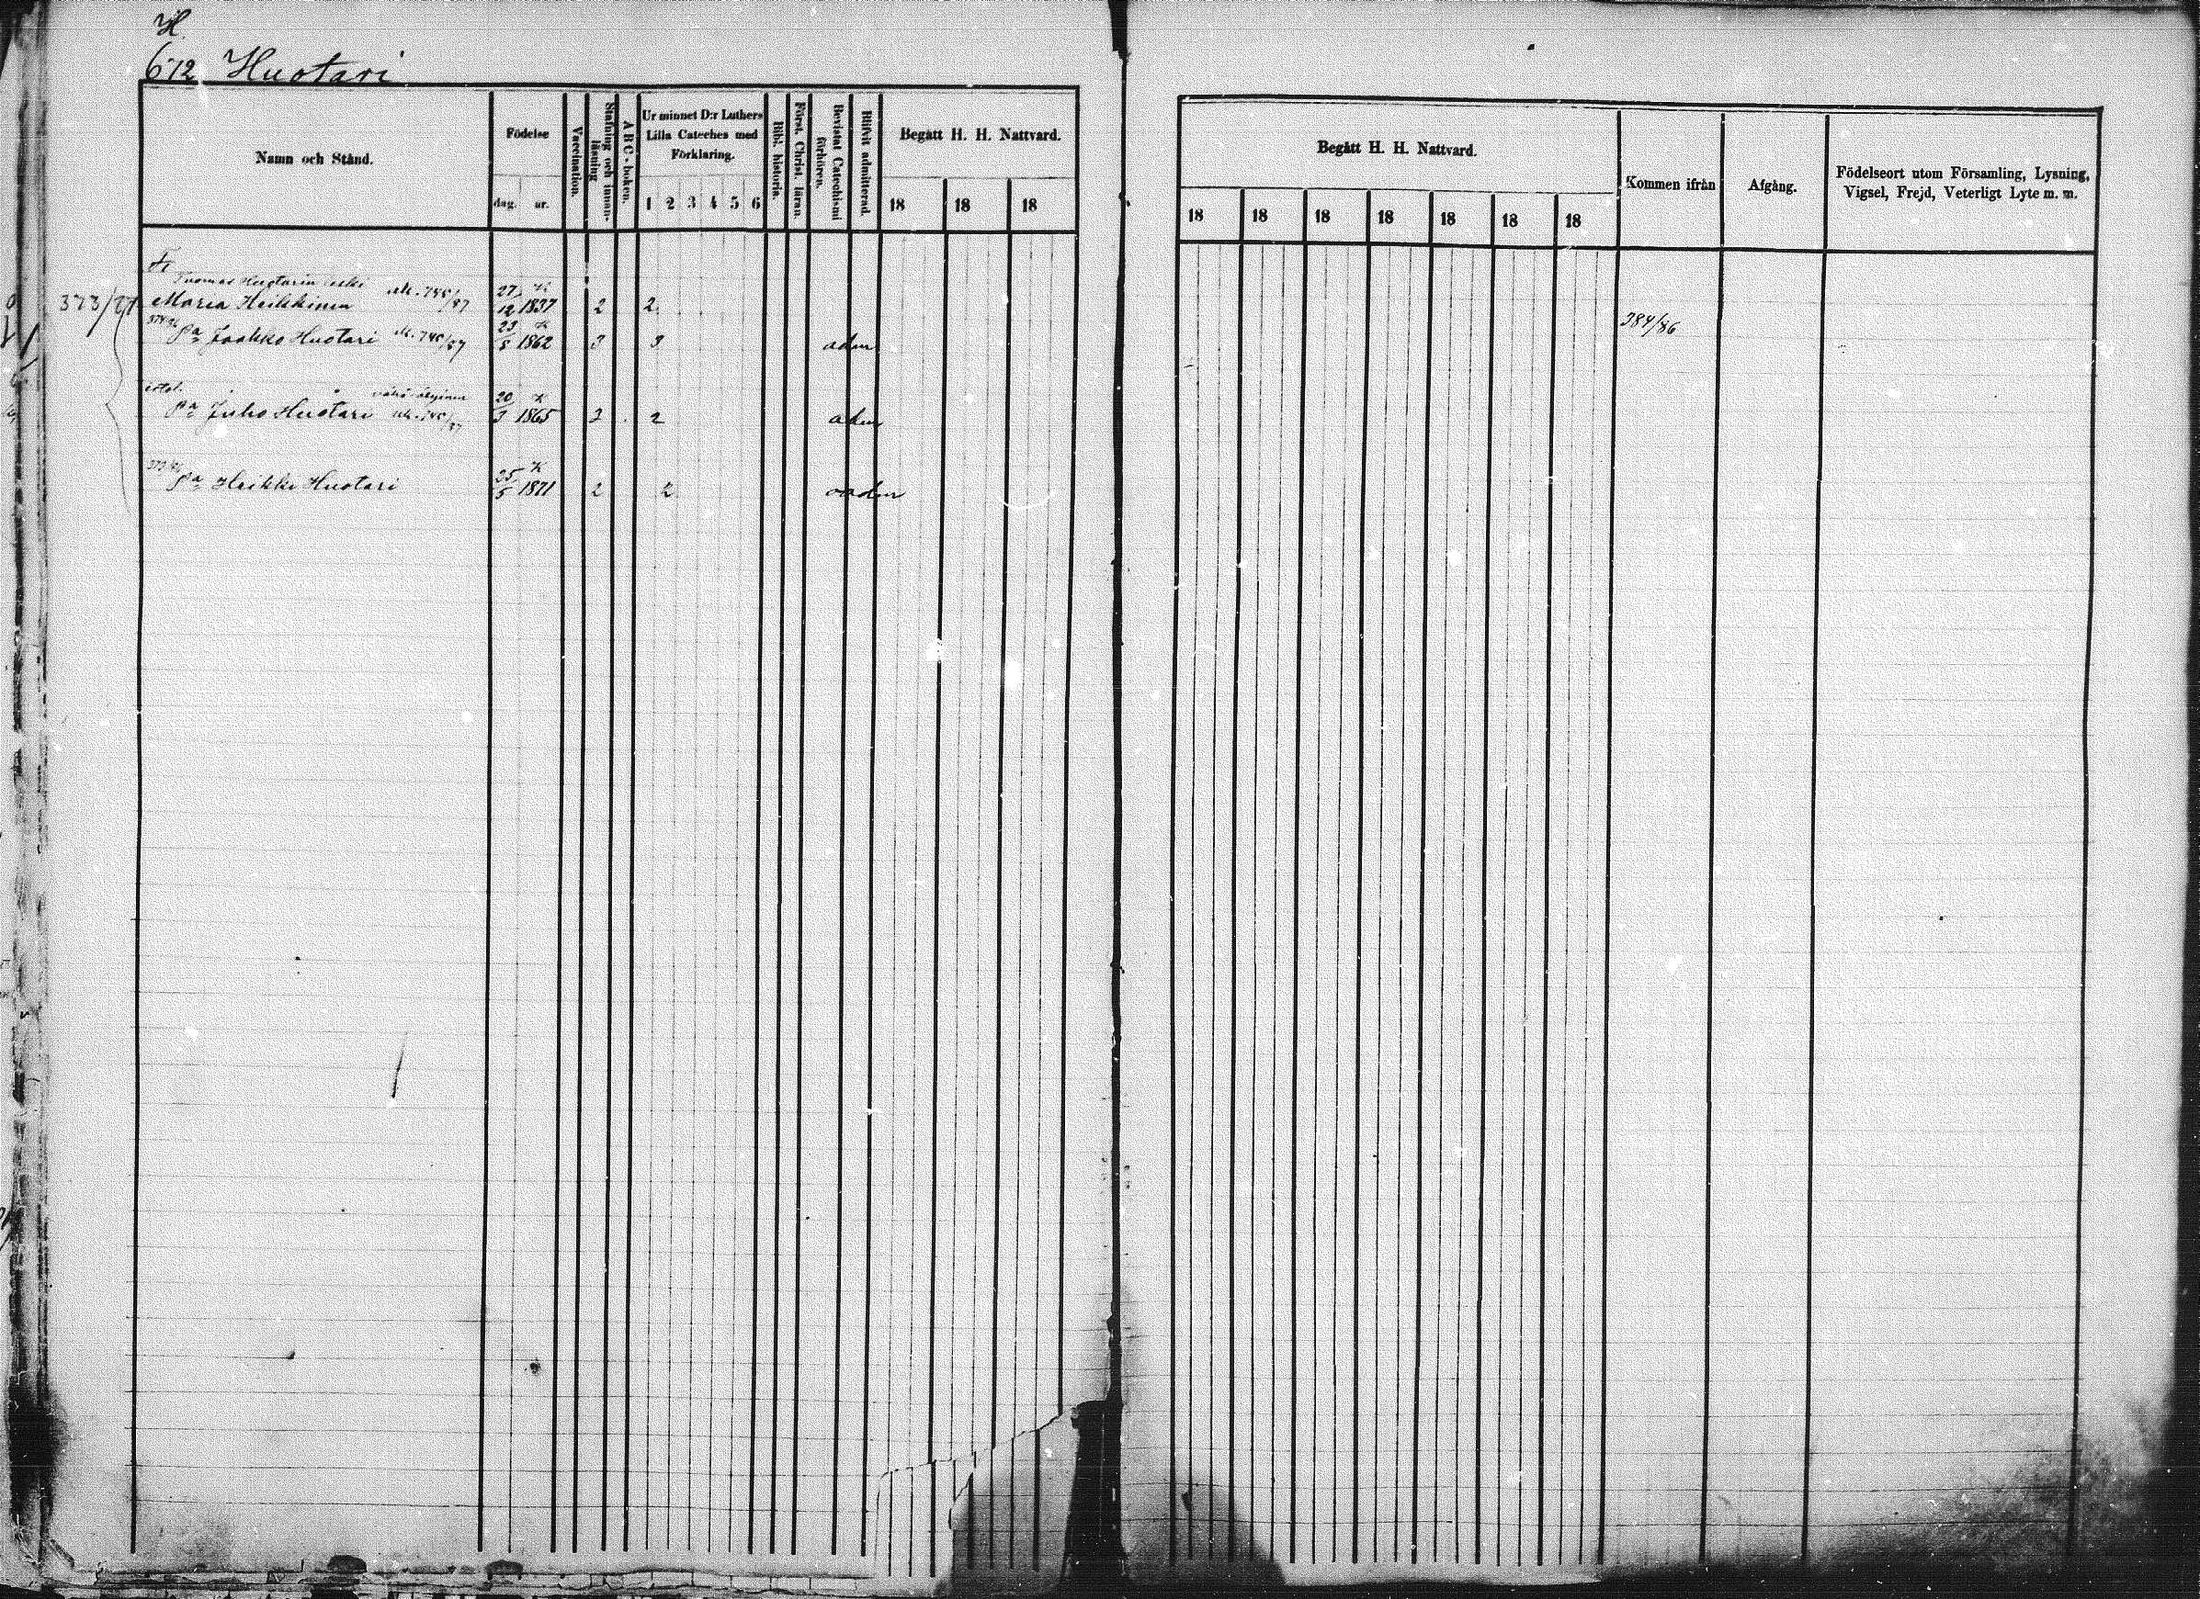 H.
612 Huotari
Namn och Stånd.
Födelse
dag. år.
Vaccination.
Stafning och innan-
läsning
A B C - boken.
Ur minnet D:r Luthers
Lilla Cateches med
Förklaring.
1 2 3 4 5 6
Bibl. historia.
Först. Christ. läran.
Bevistat Catechismi
förhören.
Blifvit admitterad.
Begått H. H. Nattvard.
18 18 18
Begått H. H. Nattvard.
18 18 18 18 18 18 18
Kommen ifrån
Afgång.
Födelseort utom Församling, Lysning,
Vigsel, Frejd, Veterligt Lyte m. m.
Tuomas Huotarin leski
373/87 Maria Heikkinen 27/12 1837 2 2
Pa Jaakko Huotari 23/5 1862 3 3 adm 384/86
Pa Juho Huotari 20/3 1865 3 2 adm
Pa Heikki Huotari 25/5 1871 2 2 oadm